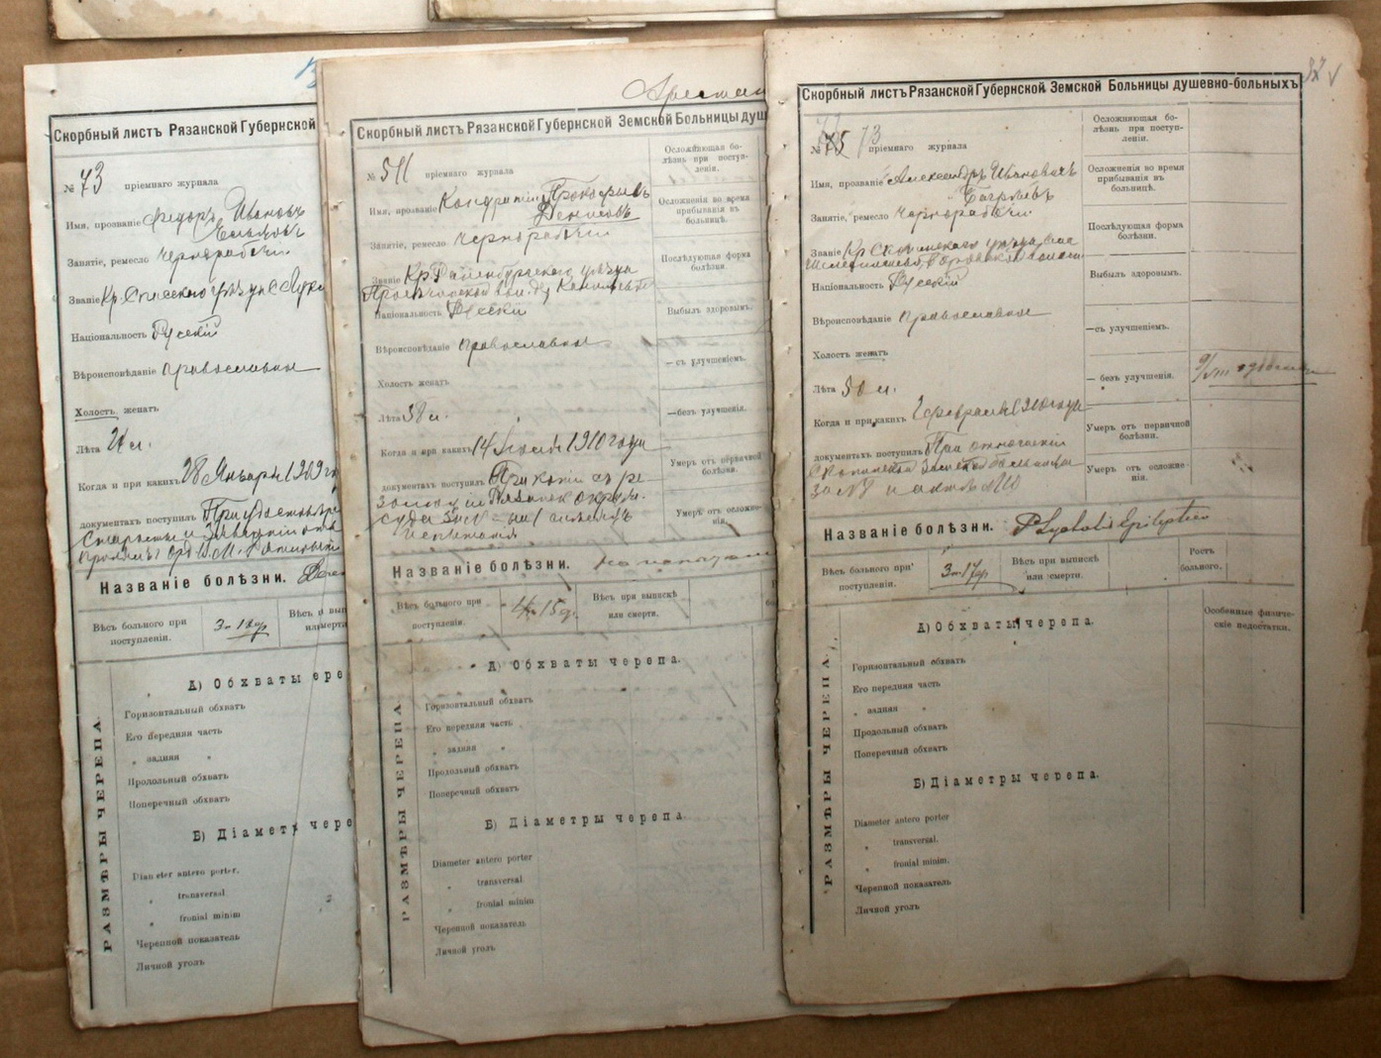 Скорбный листъ Рязанской Губернской
№ 73 пріемнаго журнала
Имя, прозваніе Федоръ Ивановъ
Занятіе, ремесло Чернорабочій
Званіе Кр. Спасскаго уѣзда с.
Національность Русскій
Вѣроисповѣданіе православное
Холостъ женатъ
Лѣта
Когда и при какихъ 28 Января 1909
документахъ поступилъ При
Названіе болѣзни.
Вѣсъ больного при поступленіи.
Вѣсъ
А) Обхваты
РАЗМѢРЫ ЧЕРЕПА.
Горизонтальный обхватъ
Его передняя часть
„ задняя „
Продольный обхватъ
Поперечный обхватъ
Б) Діаметры чере
Diameter antero porter.
„ transversal
„ fronial minim
Черепной показатель
Личной уголъ
Скорбный листъ Рязанской Губернской Земской Больницы душ
№ 511 пріемнаго журнала
Имя, прозваніе Кондратій Прокофьевъ
Денисовъ
Занятіе, ремесло Чернорабочій
Званіе Кр. Раненбургскаго уѣзда
Національность Русскій
Вѣроисповѣданіе православное
Холостъ женатъ
Лѣта 38 л.
Когда и при какихъ 14 1910 года
документахъ поступилъ При копіи съ ре
суда
Осложняющая болѣзнь при поступленіи.
Осложненія во время прибыванія въ больницѣ.
Послѣдующая форма болѣзни.
Выбылъ здоровымъ.
— съ улучшеніемъ.
— безъ улучшенія.
Умеръ отъ первичной болѣзни.
Умеръ отъ осложненія.
Названіе болѣзни.
Вѣсъ больного при поступленіи.
Вѣсъ при выпискѣ или смерти.
А) Обхваты черепа.
РАЗМѢРЫ ЧЕРЕПА.
Горизонтальный обхватъ
Его передняя часть
„ задняя „
Продольный обхватъ
Поперечный обхватъ
Б) Діаметры черепа
Diameter antero porter
„ transversal
„ fronial minim
Черепной показатель
Личной уголъ
Скорбный листъ Рязанской Губернской Земской Больницы душевно-больныхъ
№ 75 73 пріемнаго журнала
Имя, прозваніе Александръ Ивановичъ
Занятіе, ремесло Чернорабочій
Званіе Кр. Скопинскаго уѣзда
Національность Русскій
Вѣроисповѣданіе православное
Холостъ женатъ
Лѣта 30 л.
Когда и при какихъ февраля 1910 года
документахъ поступилъ При отношеніи
Скопинской Земской больницы
Осложняющая болѣзнь при поступленіи.
Осложненія во время прибыванія въ больницѣ.
Послѣдующая форма болѣзни.
Выбылъ здоровымъ.
— съ улучшеніемъ.
— безъ улучшенія.
Умеръ отъ первичной болѣзни.
Умеръ отъ осложненія.
Названіе болѣзни.
Вѣсъ больного при поступленіи.
Вѣсъ при выпискѣ или смерти.
Ростъ больного.
А) Обхваты черепа.
Особенные физическіе недостатки.
РАЗМѢРЫ ЧЕРЕПА.
Горизонтальный обхватъ
Его передняя часть
„ задняя „
Продольный обхватъ
Поперечный обхватъ
Б) Діаметры черепа.
Diameter antero porter
„ transversal.
„ fronial minim.
Черепной показатель
Личной уголъ